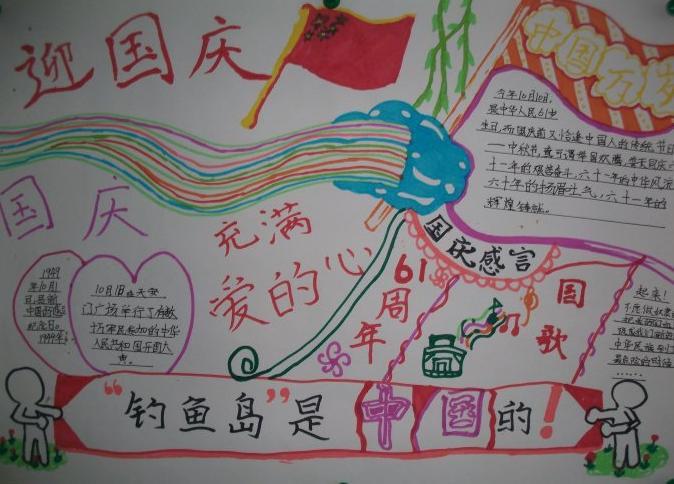 迎国庆
中国万岁
今年10月10日，
是中华人民61岁
生日，而国庆前又恰逢中国人的传统节日
——中秋节，真可谓举国欢腾，普天同庆！
十一年的艰苦奋斗，六十一年的中华风流
六十年的扬眉斗气，六十一年的
辉煌
国庆
充满
爱的心
国庆感言
61周年
国歌
1949
年10月1
日，是新
中国的
纪念日。
1949年
10月1日在天安
门广场举行了有数
十万军民参加的中华
人民共和国开国大
典。
起来！
不愿做奴隶
把我们的血肉
筑成我们新的
中华民族到了
最危险的时候
……
“钓鱼岛”是中国的！